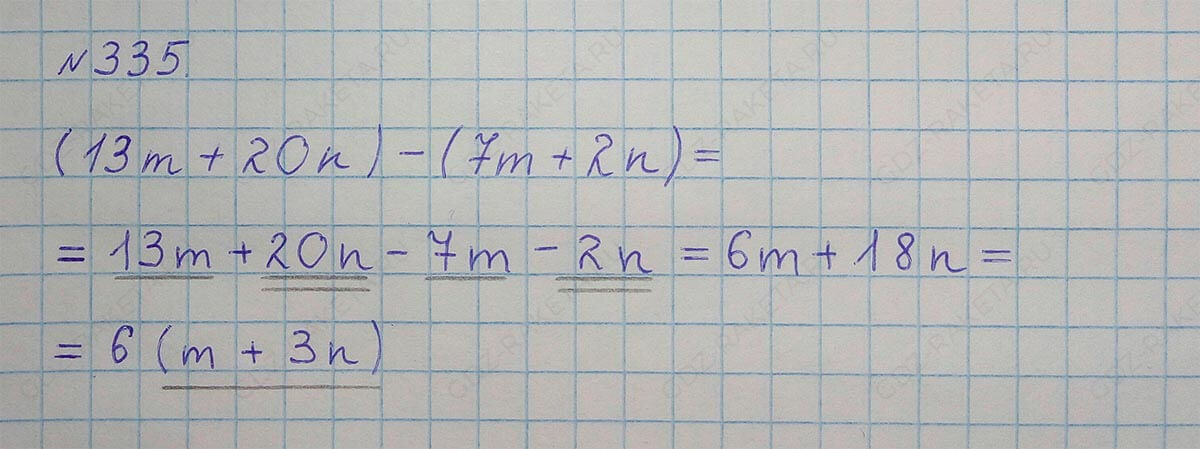 №335.
(13m + 20n) - (7m + 2n) =
= 13m + 20n - 7m - 2n = 6m + 18n =
= 6 (m + 3n)